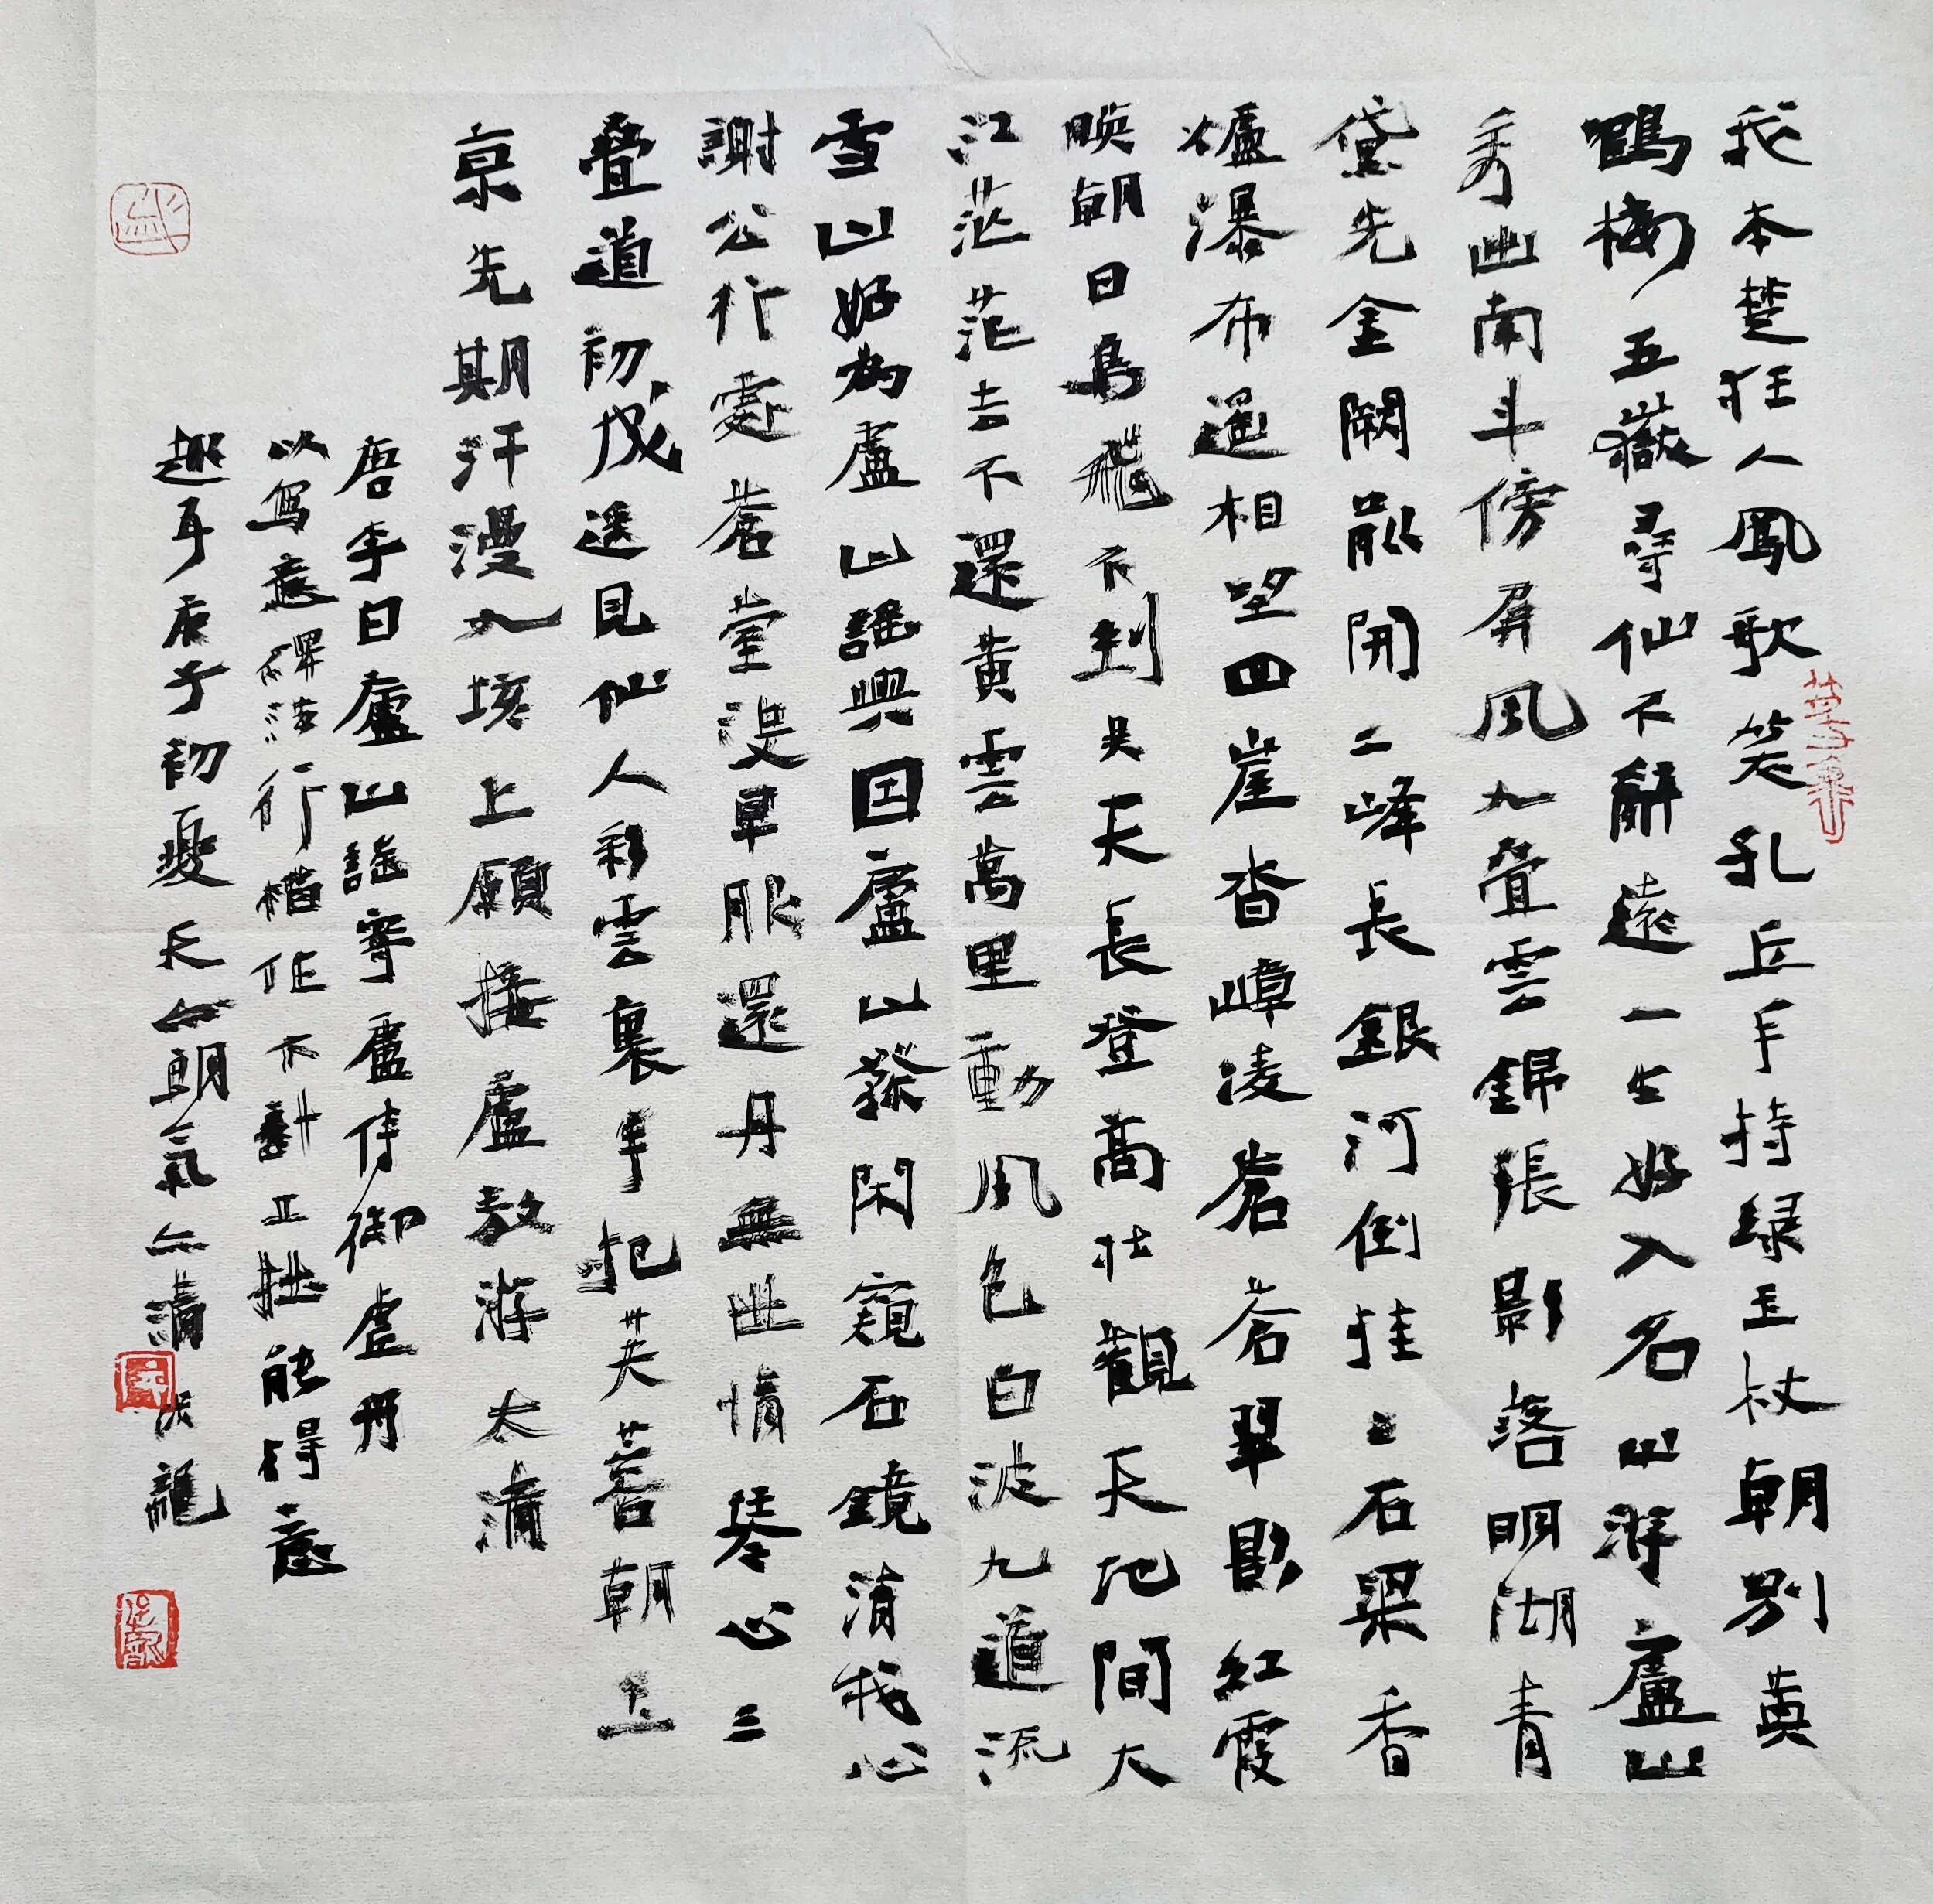 我本楚狂人鳳歌笑孔丘手持緑玉杖朝別黄
鶴樓五嶽尋仙不辭遠一生好入名山游廬山
秀出南斗傍屏風九叠雲錦張影落明湖青
黛光金闕前開二峰長銀河倒挂三石梁香
爐瀑布遥相望回崖沓嶂凌蒼蒼翠影紅霞
映朝日鳥飛不到吴天長登高壯觀天地間大
江茫茫去不還黄雲萬里動風色白波九道流
雪山好為廬山謡興因廬山發閑窺石鏡清我心
謝公行處蒼苔没早服還丹無世情琴心三
叠道初成遥見仙人彩雲裏手把芙蓉朝玉
京先期汗漫九垓上願接盧敖游太清
唐李白廬山謡寄盧侍御虚舟
以寫意碑法行楷作不計工拙能得意
趣耳庚子初夏天朗氣清龍